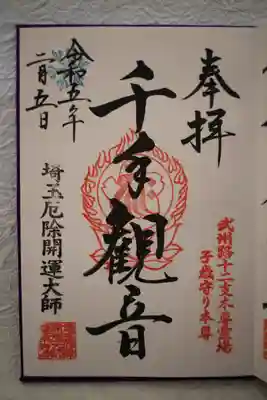 奉拝
武州路十二支本尊霊場
子歳守り本尊
千手観音
令和五年
二月五日
埼玉厄除開運大師